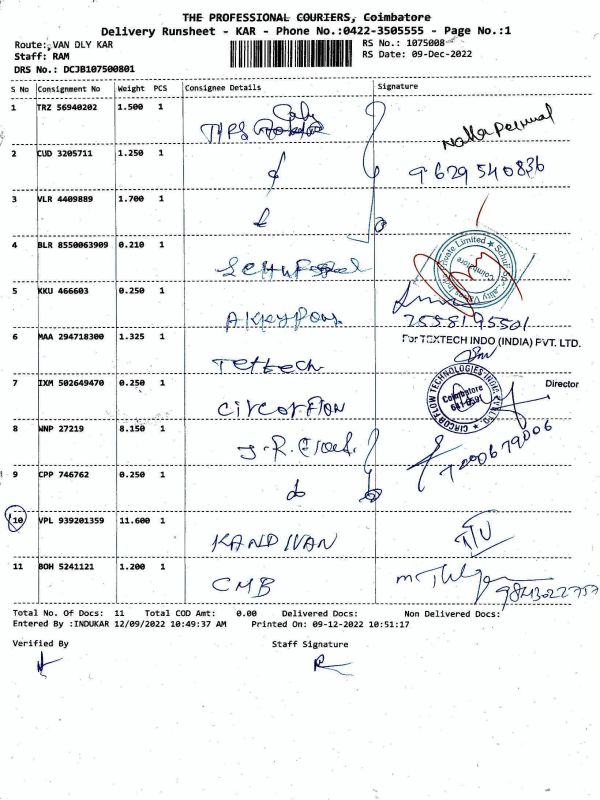 THE PROFESSIONAL COURIERS, Coimbatore
Delivery Runsheet - KAR - Phone No.:0422-3505555 - Page No.:1
Route: VAN DLY KAR
RS No.: 1075008
Staff: RAM
RS Date: 09-Dec-2022
DRS No.: DCJB107500801
S No Consignment No Weight PCS Consignee Details Signature
1 TRZ 56940202 1.500 1 Nalla Perumal
2 CUD 3205711 1.250 1 9629540836
3 VLR 4409889 1.700 1
4 BLR 8550063909 0.210 1
5 KKU 466603 0.250 1 7558195501
For TEXTECH INDO (INDIA) PVT. LTD.
6 MAA 294718300 1.325 1 Tettech
Director
7 IXM 502649470 0.250 1 Circorflow
8 WNP 27219 8.150 1 7200679006
9 CPP 746762 0.250 1
10 VPL 939201359 11.600 1 KANDIVAN
11 BOH 5241121 1.200 1 CMB
Total No. Of Docs: 11 Total COD Amt: 0.00 Delivered Docs: Non Delivered Docs:
Entered By :INDUKAR 12/09/2022 10:49:37 AM Printed On: 09-12-2022 10:51:17
Verified By Staff Signature